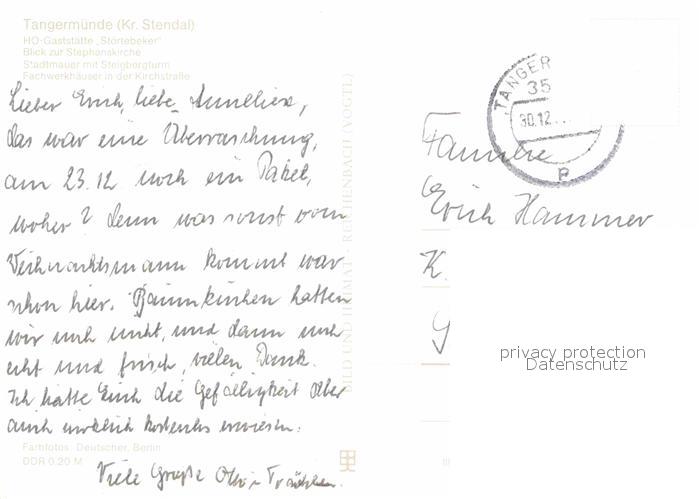 Tangermünde (Kr. Stendal)
HO-Gaststätte „Störtebeker"
Blick zur Stephanskirche
Stadtmauer mit Steigbergturm
Fachwerkhäuser in der Kirchstraße
Lieber Erich, liebe Anneliese,
das war eine Überraschung,
am 23.12 noch ein Paket,
woher? Denn was sonst vom
Weihnachtsmann kommt war
schon hier. Baumkuchen hatten
wir noch nicht, und dann noch
echt und frisch, vielen Dank.
Ich hatte Euch die Gefälligkeit aber
auch wirklich kostenlos erwiesen.
Viele Grüße
Farbfotos: Deutscher, Berlin
DDR 0,20 M
BILD UND HEIMAT REICHENBACH (VOGTL)
TANGER
35
30.12.
P
Familie
Erich Hammer
K.
privacy protection
Datenschutz